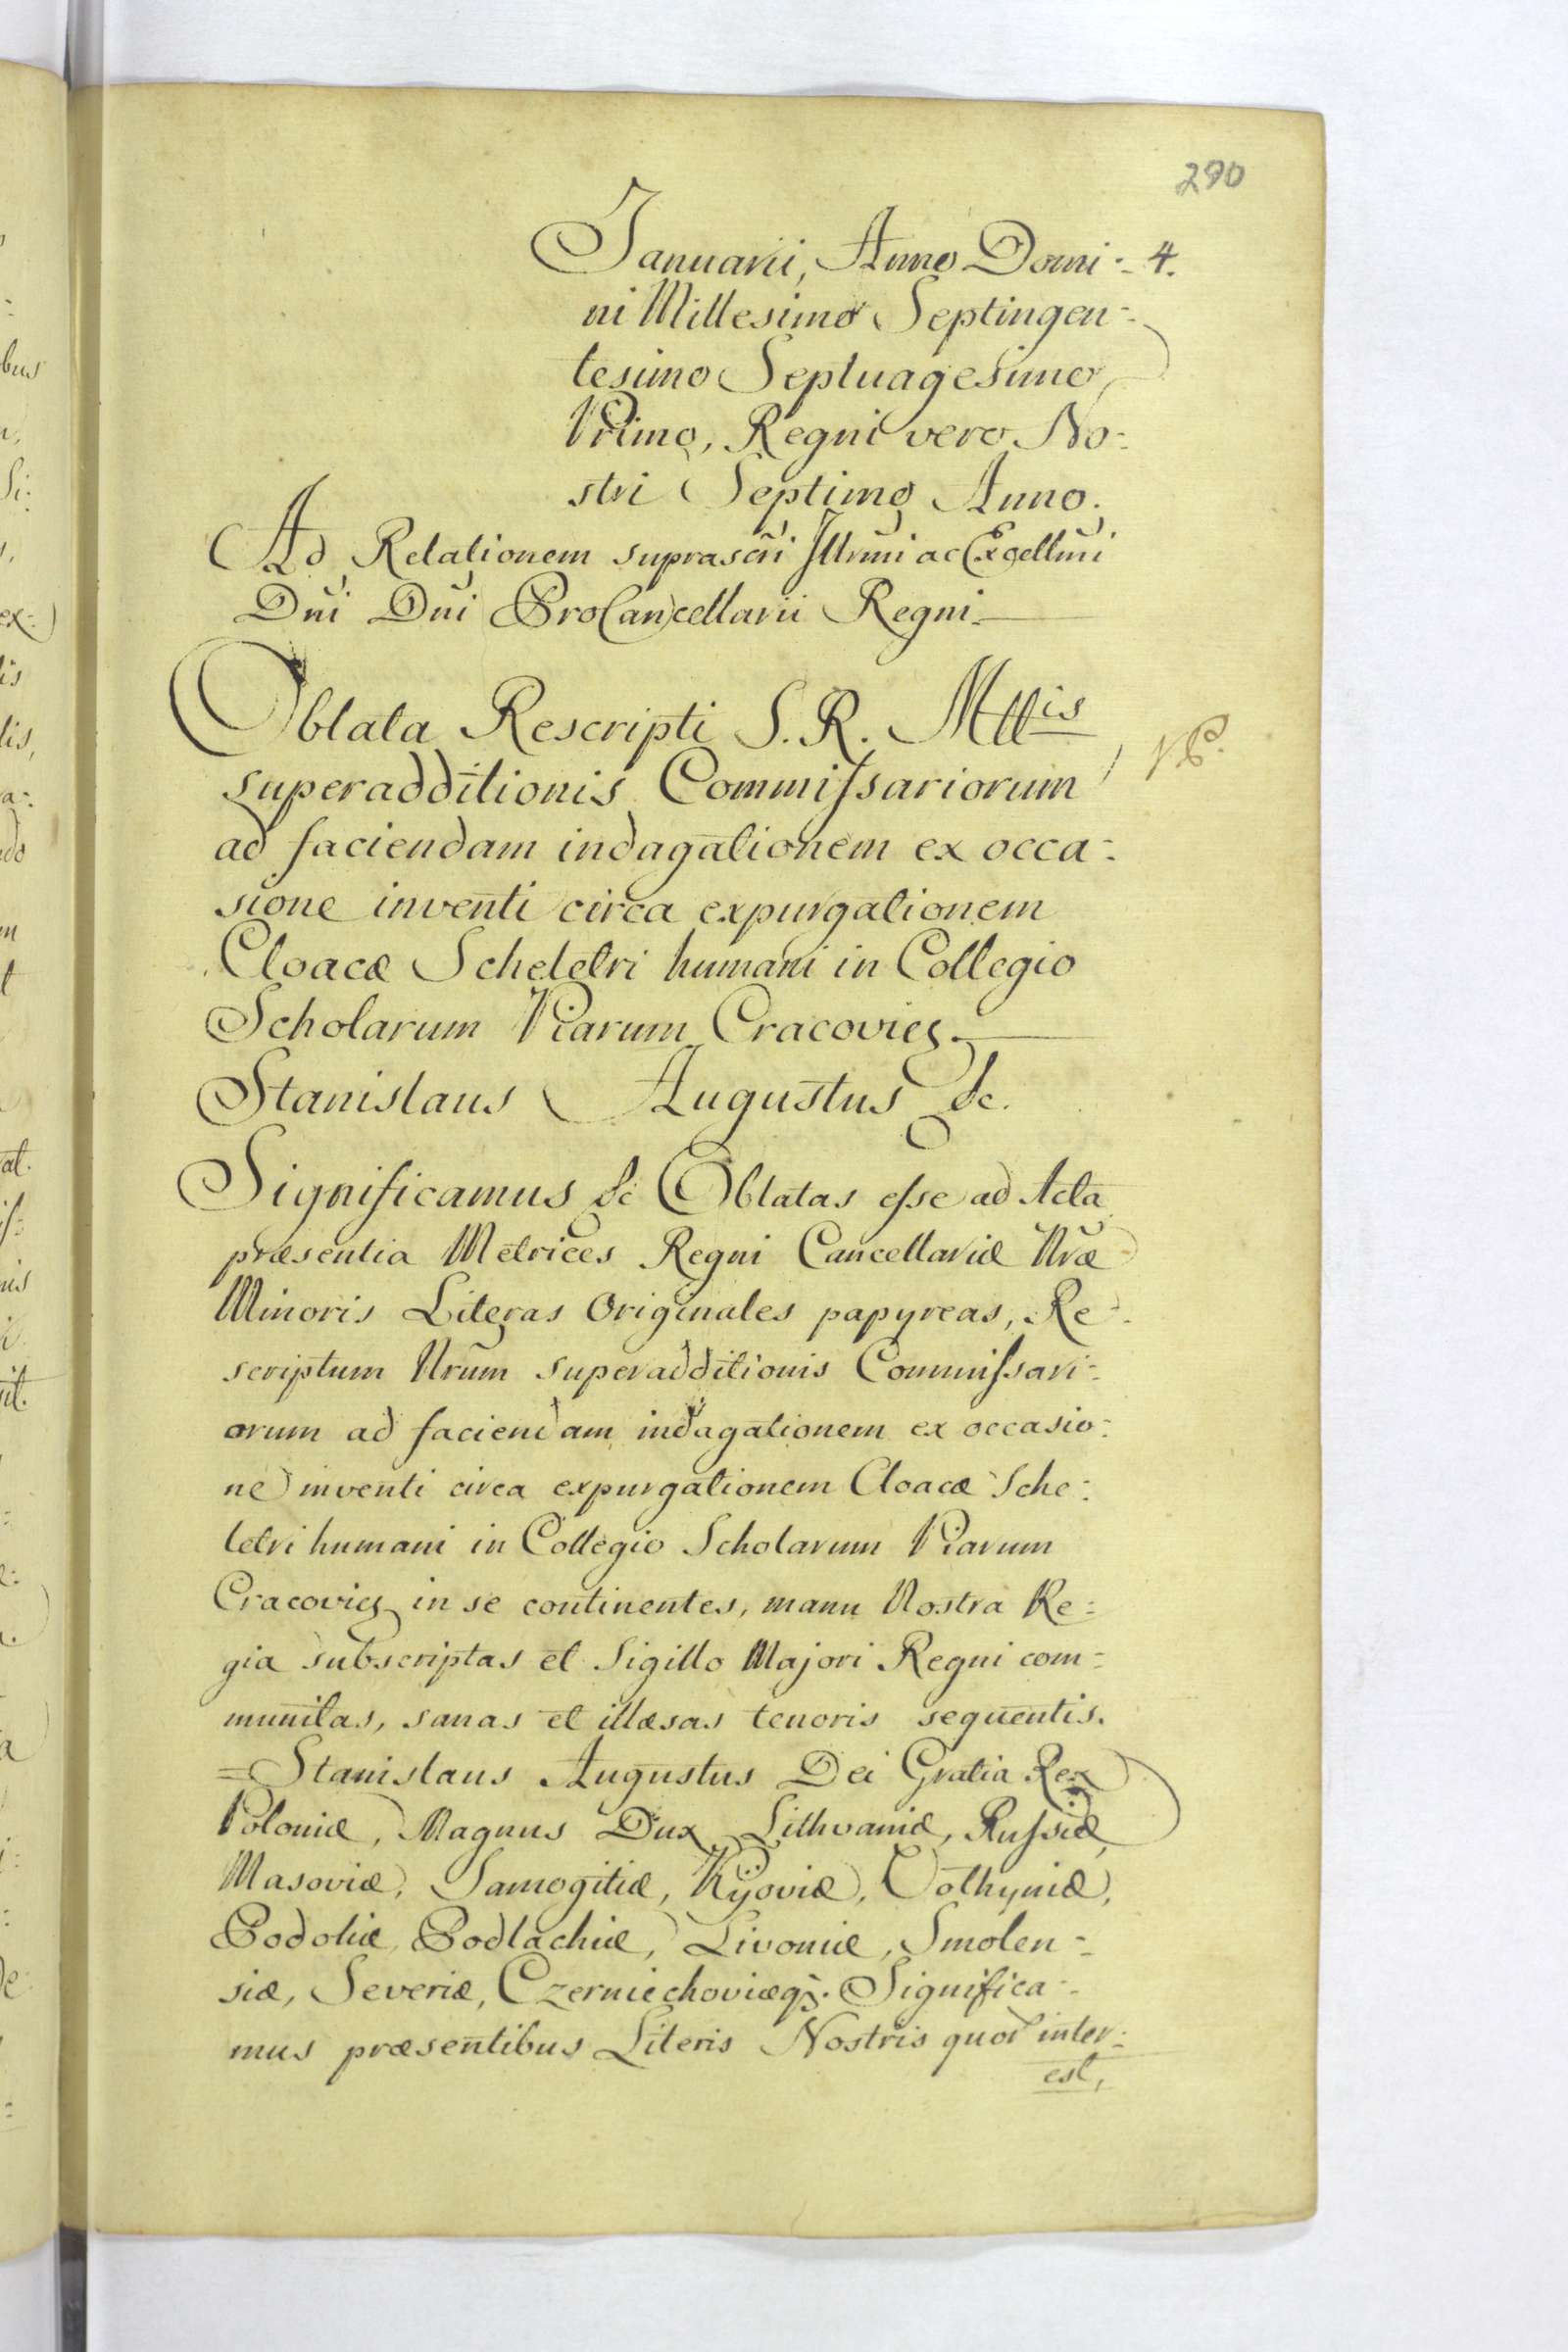 290
Januarii, Anno Domi- 4.
ni Millesimo Septingen-
tesimo Septuagesimo
Primo, Regni vero No-
stri Septimo Anno.
Ad Relationem suprascri Illrmi ac Excellmi
Dni Dni ProCancellarii Regni
Oblata Rescripti S. R. Mttis
superadditionis Commissariorum
ad faciendam indagationem ex occa-
sione inventi circa expurgationem
Cloacæ Scheletri humani in Collegio
Scholarum Piarum Cracovię
Stanislaus Augustus &c.
Significamus &c Oblatas esse ad Acta
præsentia Metrices Regni Cancellariæ Nræ
Minoris Literas Originales papyreas, Re-
scriptum Nrum superadditionis Commissari-
orum ad faciendam indagationem ex occasio-
ne inventi circa expurgationem Cloacæ Sche-
letri humani in Collegio Scholarum Piarum
Cracovię in se continentes, manu Nostra Re-
gia subscriptas et Sigillo Majori Regni com-
munitas, sanas et illæsas tenoris sequentis.
=Stanislaus Augustus Dei Gratia Rex
Poloniæ, Magnus Dux Lithvaniæ, Russiæ,
Masoviæ, Samogitiæ, Kijoviæ, Volhyniæ,
Podoliæ, Podlachiæ, Livoniæ, Smolen-
siæ, Severiæ, Czerniechoviæq;. Significa-
mus præsentibus Literis Nostris quor inter-
est,